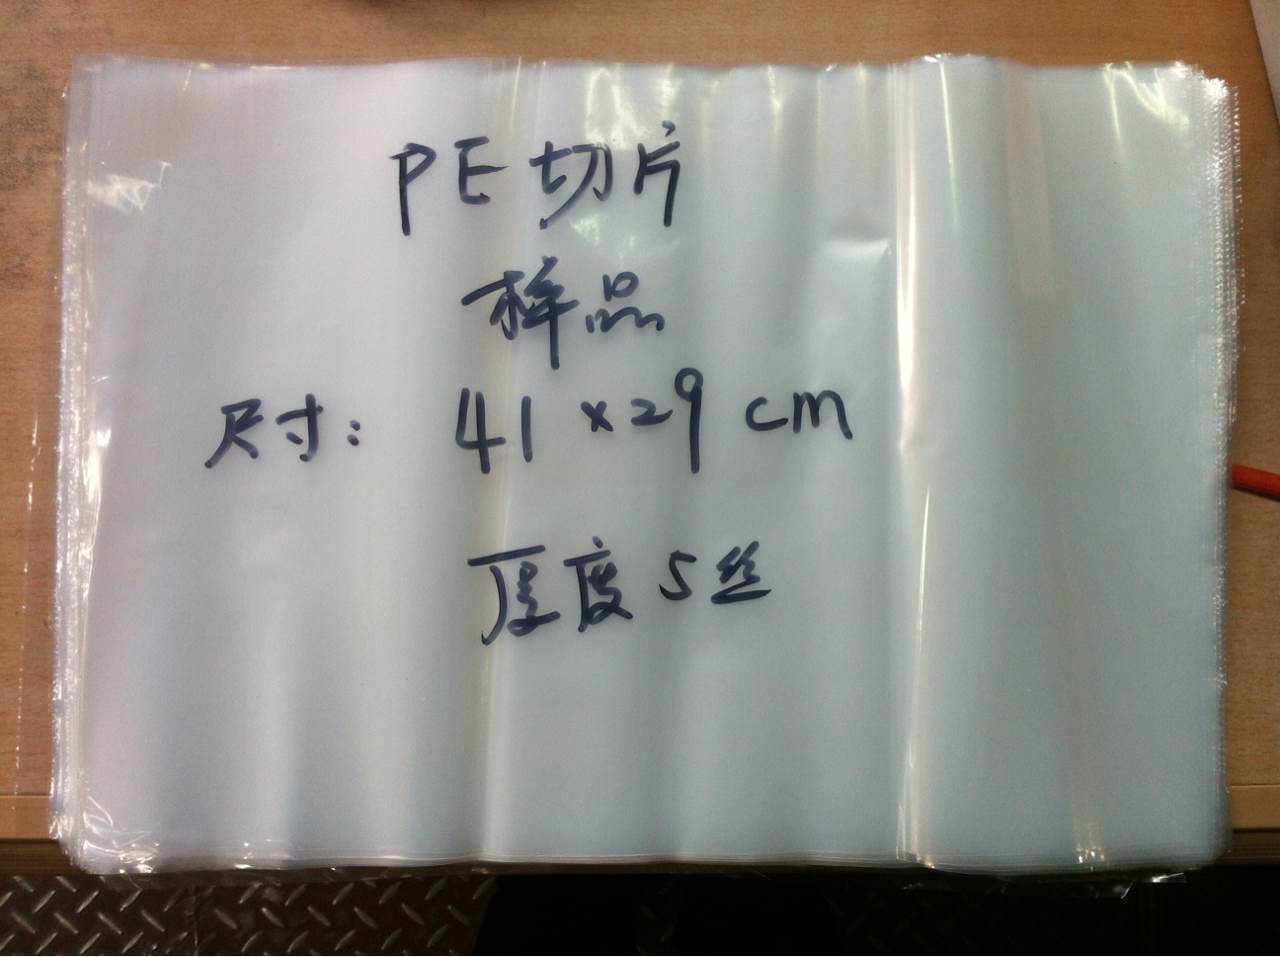 PE切片
样品
尺寸: 41×29 cm
厚度5丝